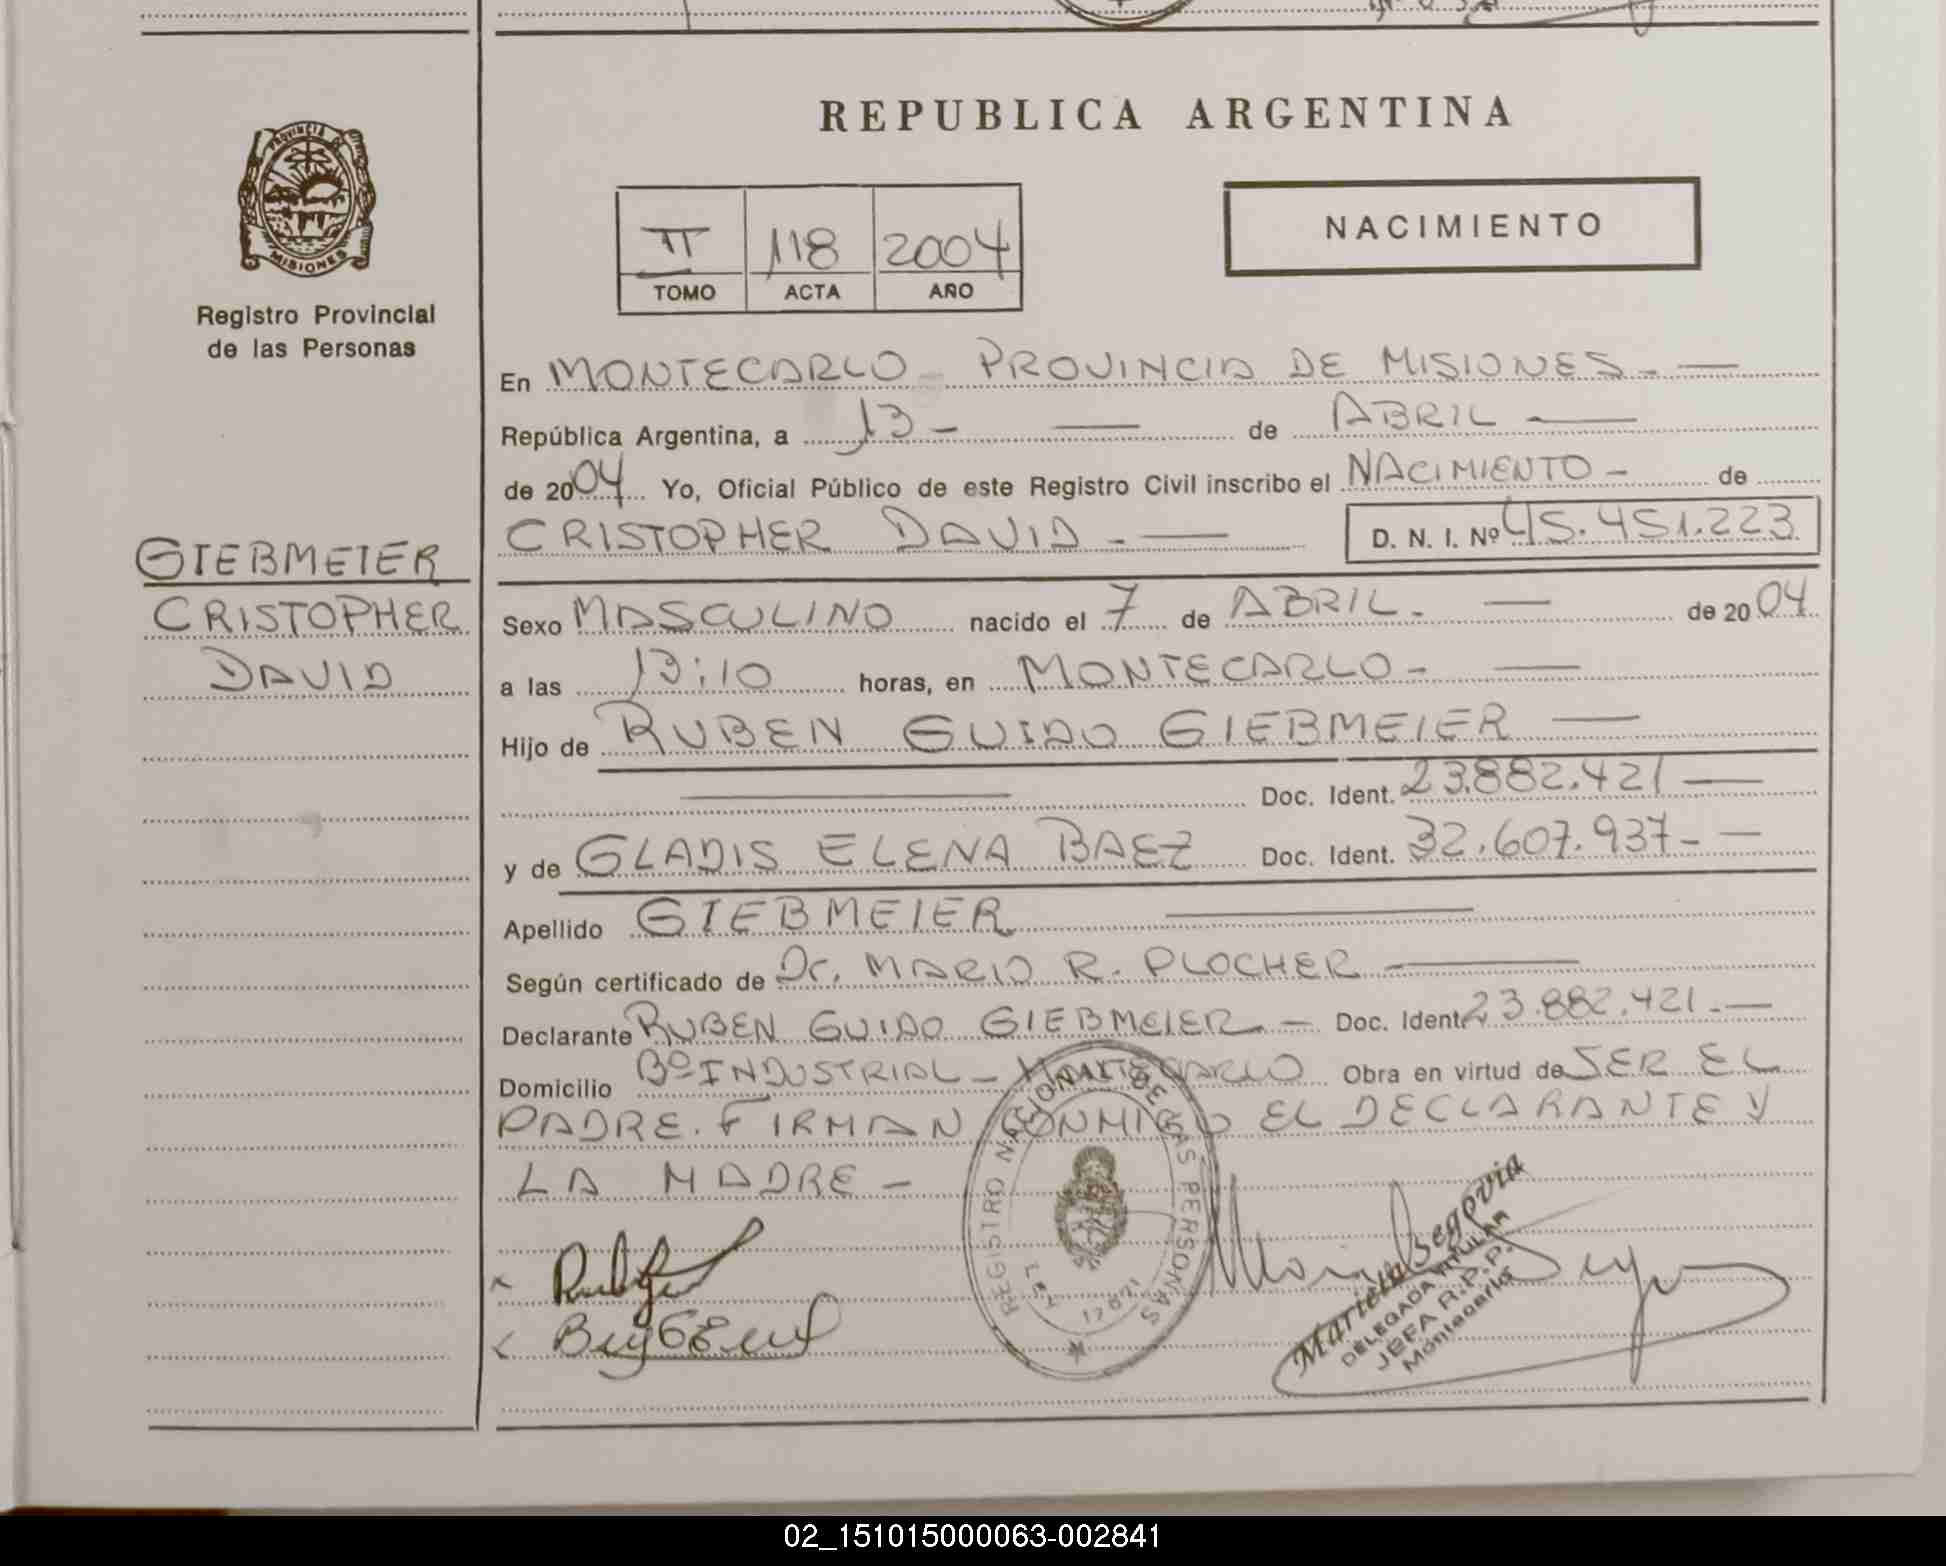 PROVINCIA DE
MISIONES
Registro Provincial
de las Personas
GIEBMEIER
CRISTOPHER
DAVID
REPUBLICA ARGENTINA
II 118 2004
TOMO ACTA AÑO
NACIMIENTO
En MONTECARLO - PROVINCIA DE MISIONES. —
República Argentina, a 13 - — de ABRIL —
de 2004 Yo, Oficial Público de este Registro Civil inscribo el NACIMIENTO - de
CRISTOPHER DAVID. — D. N. I. Nº 45.451.223
Sexo MASCULINO nacido el 7 de ABRIL. — de 2004
a las 13:10 horas, en MONTECARLO - —
Hijo de RUBEN GUIDO GIEBMEIER —
— Doc. Ident. 23.882.421 —
y de GLADIS ELENA BAEZ Doc. Ident. 32.607.937 - —
Apellido GIEBMEIER —
Según certificado de Dr. MARIO R. PLOCHER —
Declarante RUBEN GUIDO GIEBMEIER - Doc. Ident. 23.882.421. —
Domicilio Bº INDUSTRIAL - MONTECARLO Obra en virtud de SER EL
PADRE. FIRMAN CONMIGO EL DECLARANTE Y
LA MADRE -
REGISTRO NACIONAL DE LAS PERSONAS
LEY 17671
Mariela Segovia
DELEGADA TITULAR
JEFA R.P.P.
Montecarlo
02_151015000063-002841